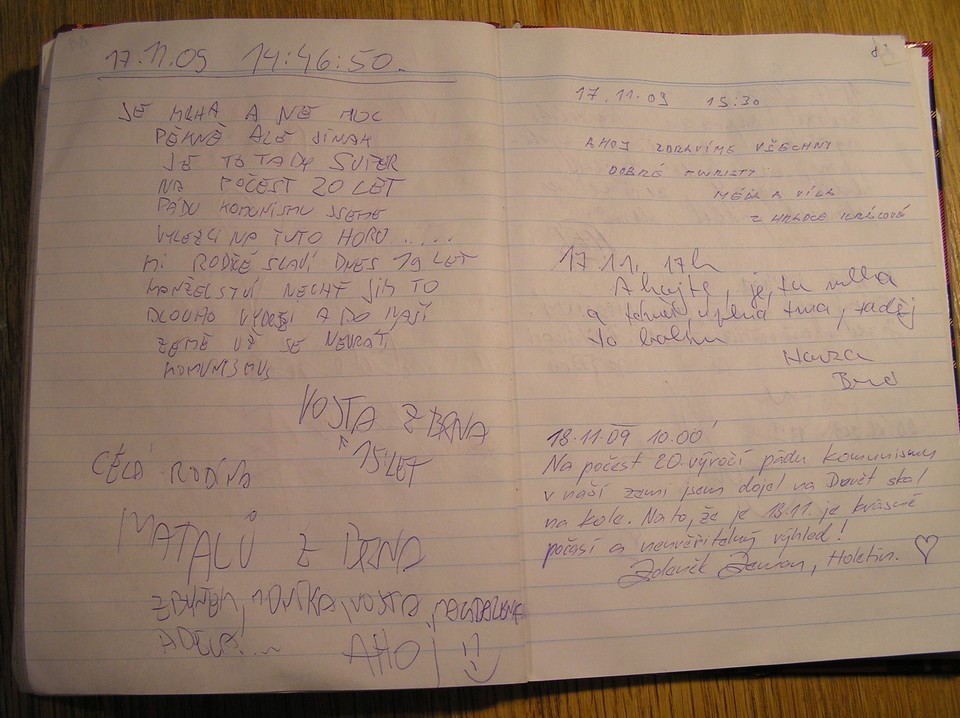 17.11.09 14:46:50.
JE MLHA A NE MOC
PĚKNĚ ALE JINAK
JE TO TADY SUPER
NA POČEST 20 LET
PÁDU KOMUNISMU JSEME
VYLEZLI NA TUTO HORU.....
MI RODIČE SLAVÍ DNES 19 LET
MANŽELSTVÍ NECHŤ JIM TO
DLOUHO VYDRŽÍ A DO NAŠÍ
ZEMĚ UŽ SE NEVRÁTÍ
KOMUNISMUS
VOJTA Z BRNA
15 LET
CELÁ RODINA
MATALŮ Z BRNA
ZBYNĚK, MONIKA, VOJTA, MAGDALENA
ADÉLA...
AHOJ
17.11.09 15:30
AHOJ ZDRAVÍME VŠECHNY
DOBRÉ TURISTY
MÉĎA A VÍLA
Z HRADCE KRÁLOVÉ
17 11. 17h
Ahojte, je tu mlha
a téměř úplná tma, raději
to balím
Honza
Brno
18.11.09 10.00
Na počest 20.výročí pádu komunismu
v naší zemi jsem dojel na Devět skal
na kole. Na to, že je 18.11. je krásné
počasí a neuvěřitelný výhled!
Zdeněk Zeman, Holetín.